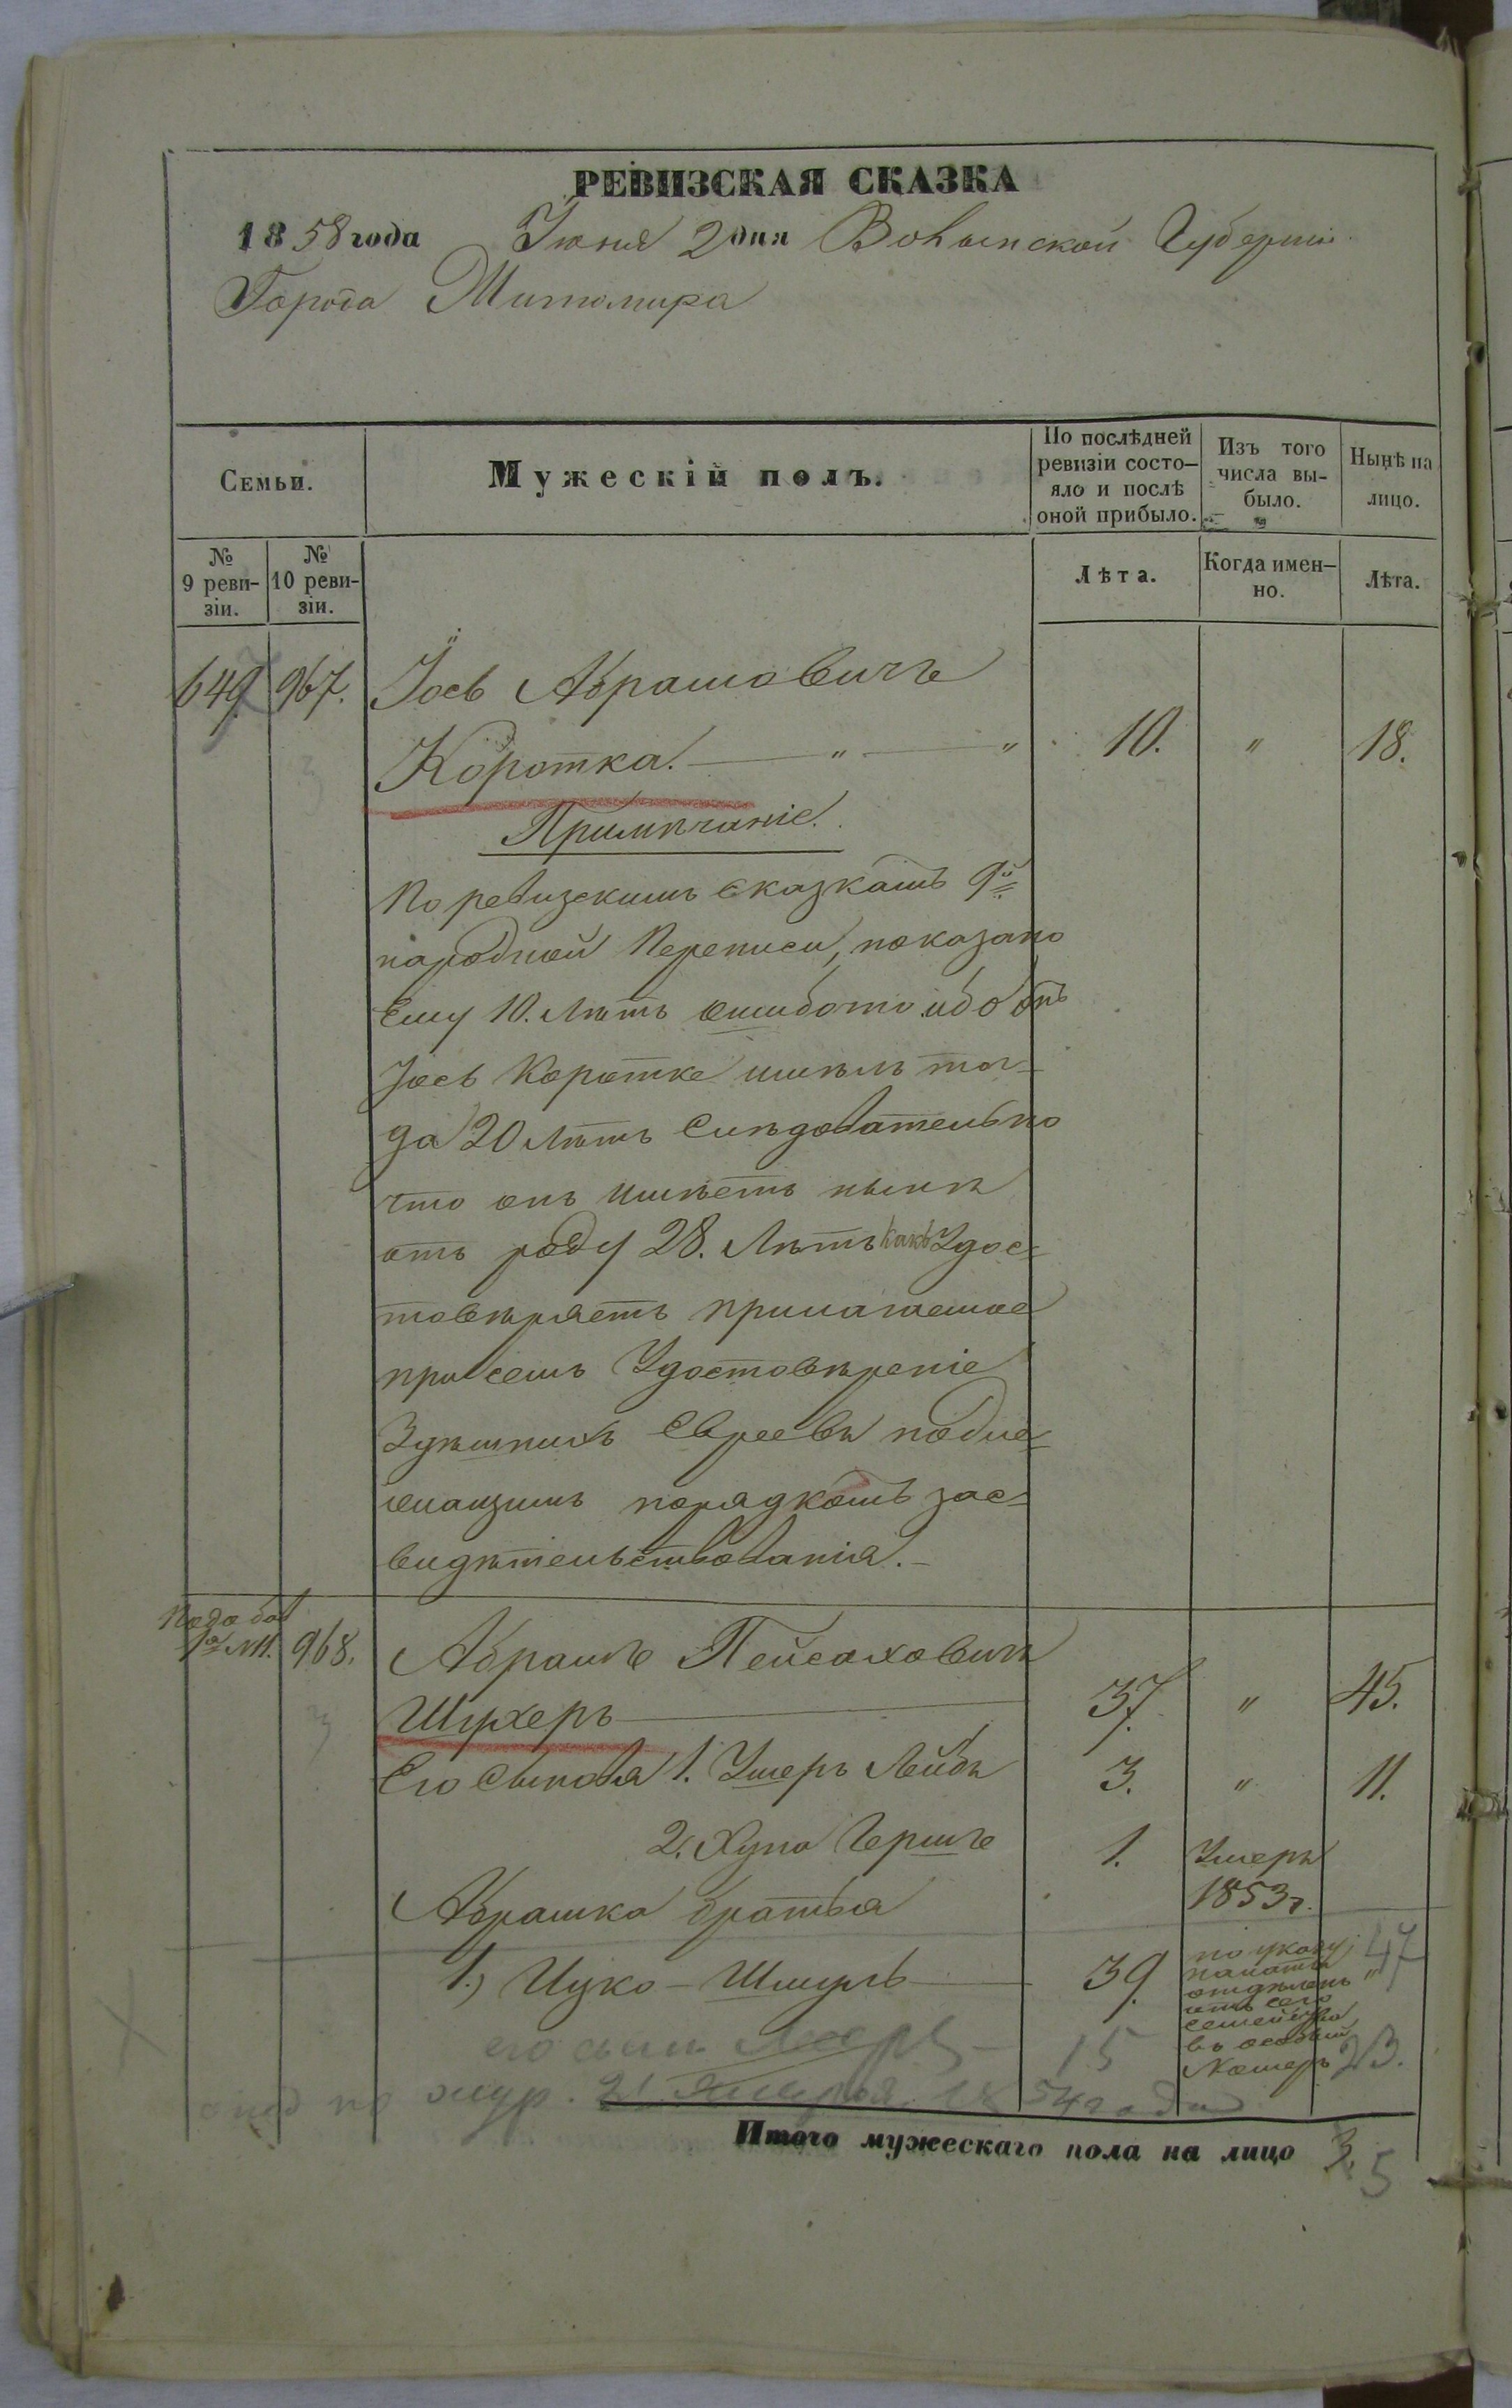 РЕВИЗСКАЯ СКАЗКА
1858 года Іюня 2 дня Волынской Губерніи
Города Житомира
Семьи.
Мужескій полъ.
По послѣдней ревизіи состо-
яло и послѣ оной прибыло.
Изъ того числа вы-
было.
Нынѣ на лицо.
№ 9 реви-
зіи.
№ 10 реви-
зіи.
Лѣта.
Когда имен-
но.
Лѣта.
649. 967. Іось Абрамовичъ
Коротка. — " — " 10. " 18.
Примѣчаніе.
По ревизскимъ сказкамъ 9й
народной Переписи, показано
Ему 10. Лѣтъ ошибото ибо онъ
Іось Коротке имѣлъ тог-
да 20 лѣтъ Слѣдовательно
что онъ имѣетъ нынѣ
отъ роду 28. Лѣтъ какъ Удос-
товѣряетъ прилагаемое
при семъ Удостовѣреніе
Здѣшнихъ Евреевъ подле-
жащимъ порядкомъ зас-
видѣтельствованія. —
968. Абрамъ Пейсаховичъ
Шухеръ 37. " 45.
Его сыновья 1. Умеръ Лейбъ 3. " 11.
2. Хуна Гершъ 1. Умеръ
1853г.
Абрашка братья
1.) Ицко-Шмуль 39. " 47
по указу
палаты
отдѣленъ
отъ сего
семейства
въ особый
Номеръ
его сынъ 15 23.
жур. 21 54 года
Итого мужескаго пола на лицо 3. 5